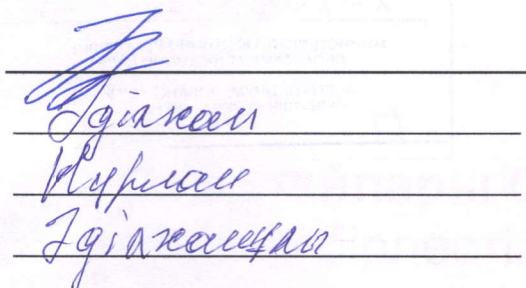 Әділхан
Нұрлан
Әділханұлы